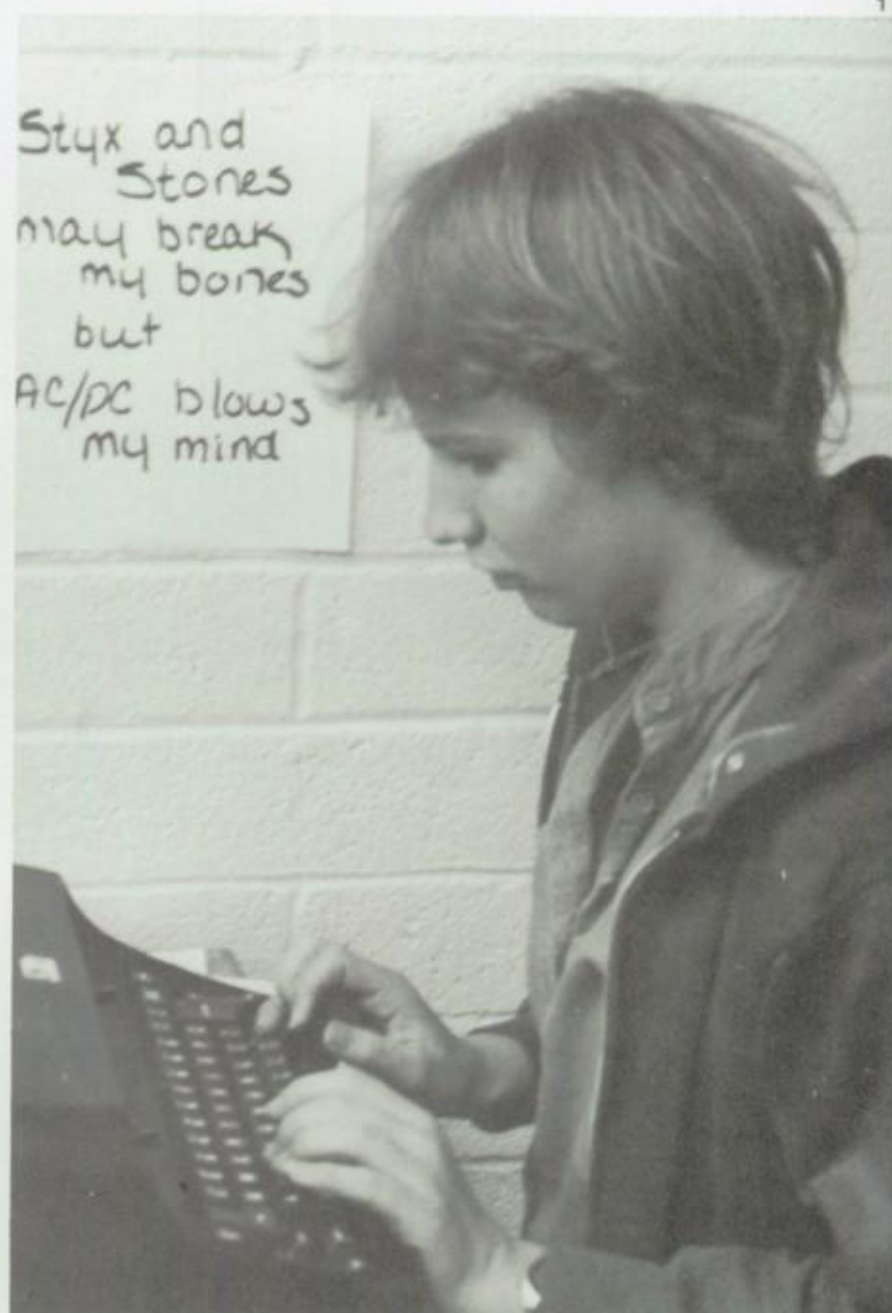 Styx and
Stones
may break
my bones
but
AC/DC blows
my mind